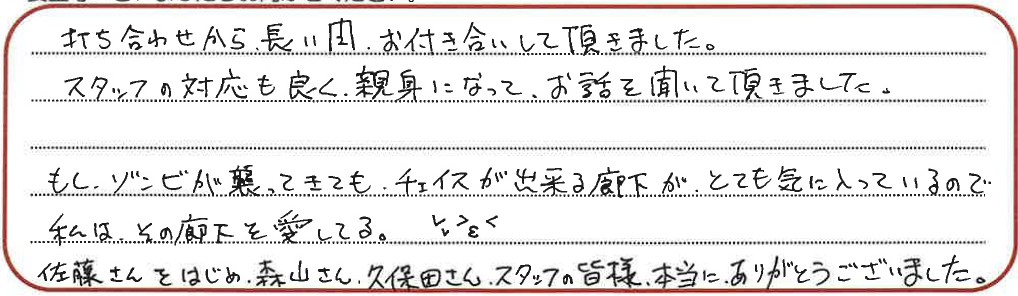 打ち合わせから、長い間、お付き合いして頂きました。
スタッフの対応も良く、親身になって、お話を聞いて頂きました。
もし、ゾンビが襲ってきても、チェイスが出来る廊下が、とても気に入っているので
私は、その廊下を愛してる。
佐藤さんをはじめ、森山さん、久保田さん、スタッフの皆様、本当に、ありがとうございました。